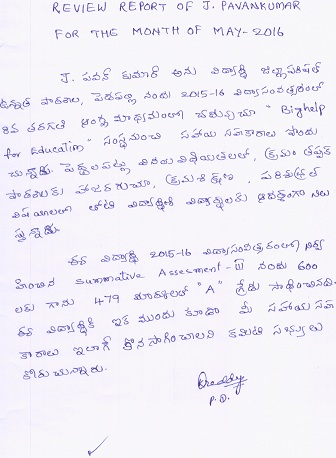 REVIEW REPORT OF J. PAVANKUMAR
FOR THE MONTH OF MAY-2016
J. పవన్ కుమార్ అను విద్యార్థి జిల్లాపరిషత్
ఉన్నత పాఠశాల, పెదపల్లి నందు 2015-16 విద్యాసంవత్సరంలో
8వ తరగతి ఆంగ్ల మాధ్యమంలో చదువుచూ "Bighelp
for Education" సంస్థనుంచి సహాయ సహకారాలు పొందు
చున్నాడు. పెద్దలపట్ల వినయవిధేయతలలో, క్రమం తప్పక
పాఠశాలకు హాజరగుచూ, క్రమశిక్షణ, పరిశుభ్రత
విషయాలలో తోటి విద్యార్థినీ విద్యార్థులకు ఆదర్శంగా నిలు
స్తున్నాడు.
ఈ విద్యార్థి 2015-16 విద్యాసంవత్సరంలో నిర్వ
హించిన Summative Assesment-III నందు 600
లకు గాను 479 మార్కులతో "A" గ్రేడు సాధించినది.
ఈ విద్యార్థికి ఇక ముందు కూడా మీ సహాయ సహ
కారాలు ఇలాగే కొనసాగించాలని కమిటి సభ్యులు
కోరుచున్నారు.
P.D.